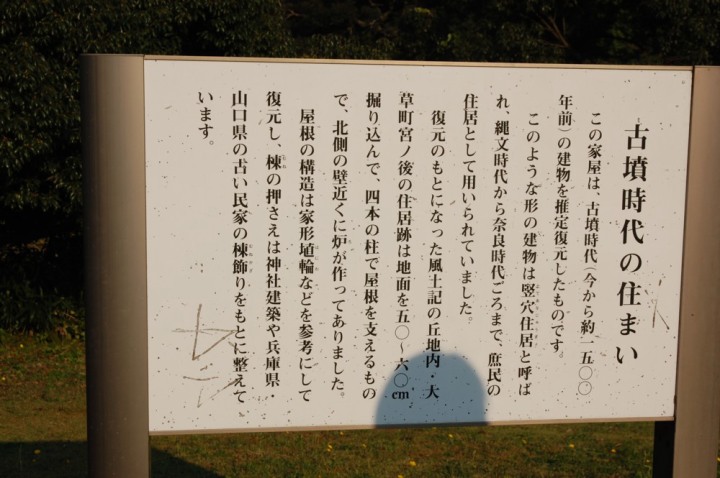 古墳時代の住まい
この家屋は、古墳時代（今から約一五〇〇
年前）の建物を推定復元したものです。
このような形の建物は竪穴住居と呼ば
れ、縄文時代から奈良時代ごろまで、庶民の
住居として用いられていました。
復元のもとになった風土記の丘地内・大
草町宮ノ後の住居跡は地面を五〇〜六〇cm
掘り込んで、四本の柱で屋根を支えるもの
で、北側の壁近くに炉が作ってありました。
屋根の構造は家形埴輪などを参考にして
復元し、棟の押さえは神社建築や兵庫県・
山口県の古い民家の棟飾りをもとに整えて
います。